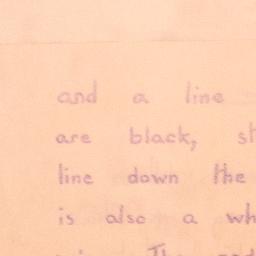 and a line
are black,
line down the
is also a
The